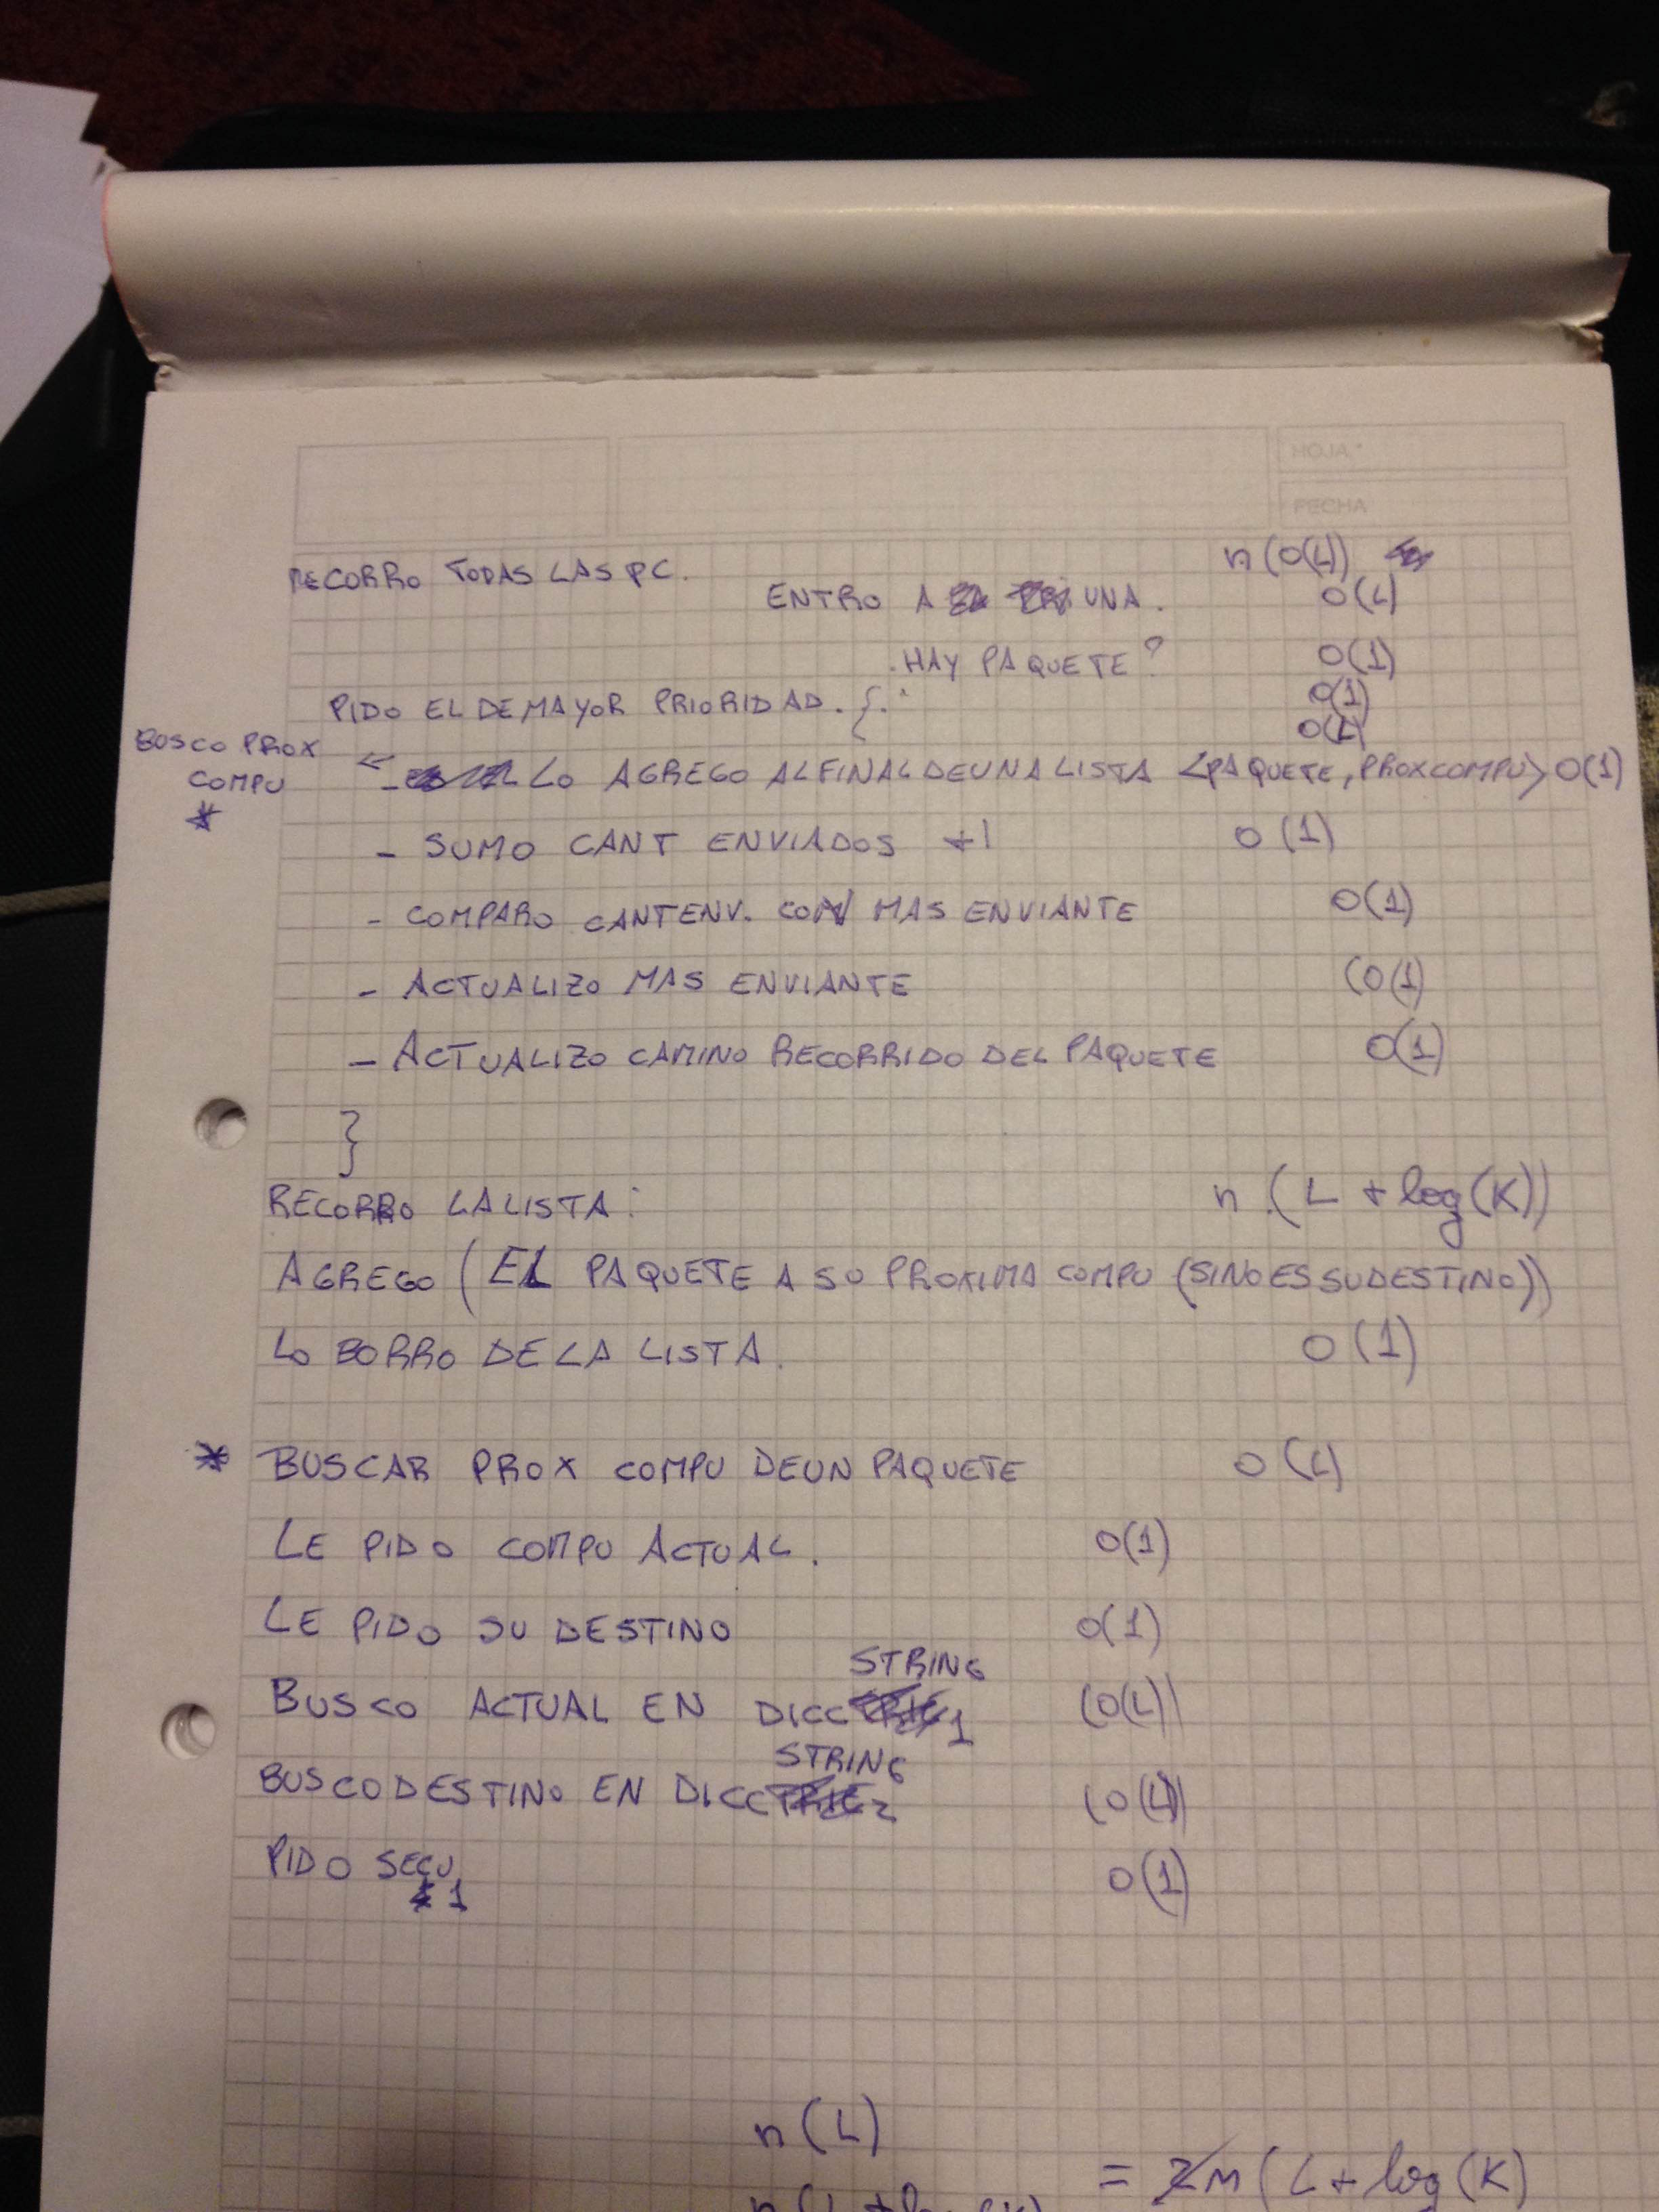 HOJA N°
FECHA
RECORRO TODAS LAS PC. n(O(L))
ENTRO A UNA. O(L)
. HAY PAQUETE? O(1)
PIDO EL DE MAYOR PRIORIDAD. { O(1)
O(L)
BUSCO PROX COMPU * ←
- LO AGREGO AL FINAL DE UNA LISTA <PAQUETE, PROXCOMPU> O(1)
- SUMO CANT ENVIADOS +1 O(1)
- COMPARO CANTENV. CON MAS ENVIANTE O(1)
- ACTUALIZO MAS ENVIANTE (O(1)
- ACTUALIZO CAMINO RECORRIDO DEL PAQUETE O(1)
}
RECORRO LA LISTA: n.(L + log(K))
AGREGO (EL PAQUETE A SU PROXIMA COMPU (SI NO ES SU DESTINO))
LO BORRO DE LA LISTA. O(1)
* BUSCAR PROX COMPU DE UN PAQUETE O(L)
LE PIDO COMPU ACTUAL. O(1)
LE PIDO SU DESTINO O(1)
BUSCO ACTUAL EN DICCSTRING1 (O(L))
BUSCO DESTINO EN DICCSTRING2 (O(L))
PIDO SECU 1 O(1)
n(L)
= 2n(L + log(K)